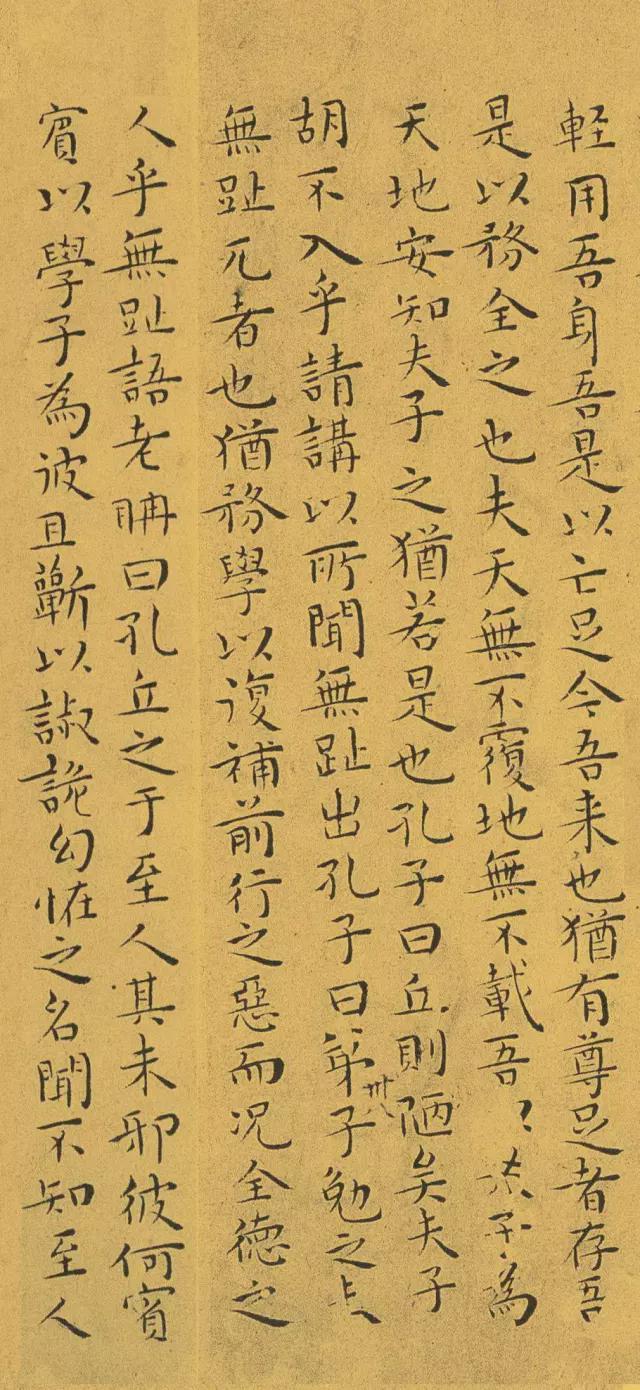 軽用吾身吾是以亡足今吾来也猶有尊足者存吾
是以務全之也夫天無不覆地無不載吾夫子為
天地安知夫子之猶若是也孔子曰丘則陋矣夫子
胡不入乎請講以所聞無趾出孔子曰苐子勉之
無趾兀者也猶務學以復補前行之惡而况全徳之
人乎無趾語老聃曰孔丘之于至人其未邪彼何賓
賓以學子為彼且蘄以諔詭幻恠之名聞不知至人